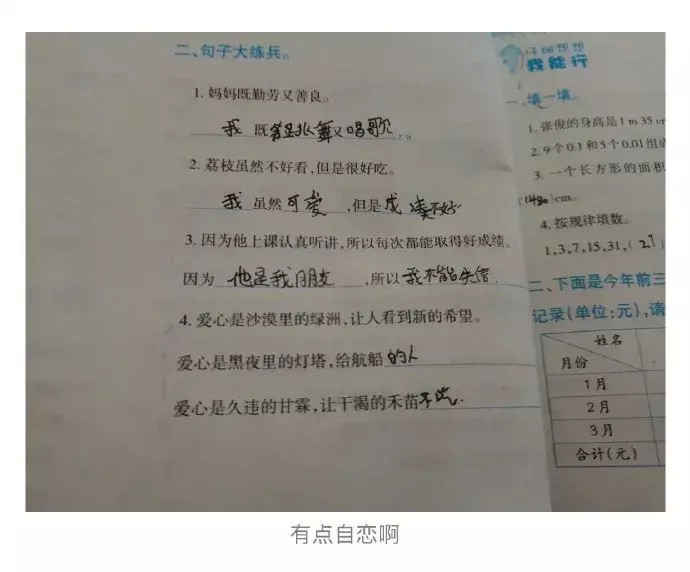 二、句子大练兵。
1. 妈妈既勤劳又善良。
我 既 跳舞又唱歌 。
2. 荔枝虽然不好看,但是很好吃。
我 虽然 可爱 ,但是 成 不好
3. 因为他上课认真听讲,所以每次都能取得好成绩。
因为 他是我朋友 ,所以 我不能失信.
4. 爱心是沙漠里的绿洲,让人看到新的希望。
爱心是黑夜里的灯塔,给航船 的人
爱心是久违的甘霖,让干渴的禾苗
仔细想想
我能行
一、填一填。
1. 张俊的身高是1 m 35 c
2. 9个0.1和5个0.01组
3. 一个长方形的面积
cm。
4. 按规律填数。
1,3,7,15,31,( 27 )
二、下面是今年前三
记录(单位:元),请
姓名
月份
1月
2月
3月
合计(元)
有点自恋啊